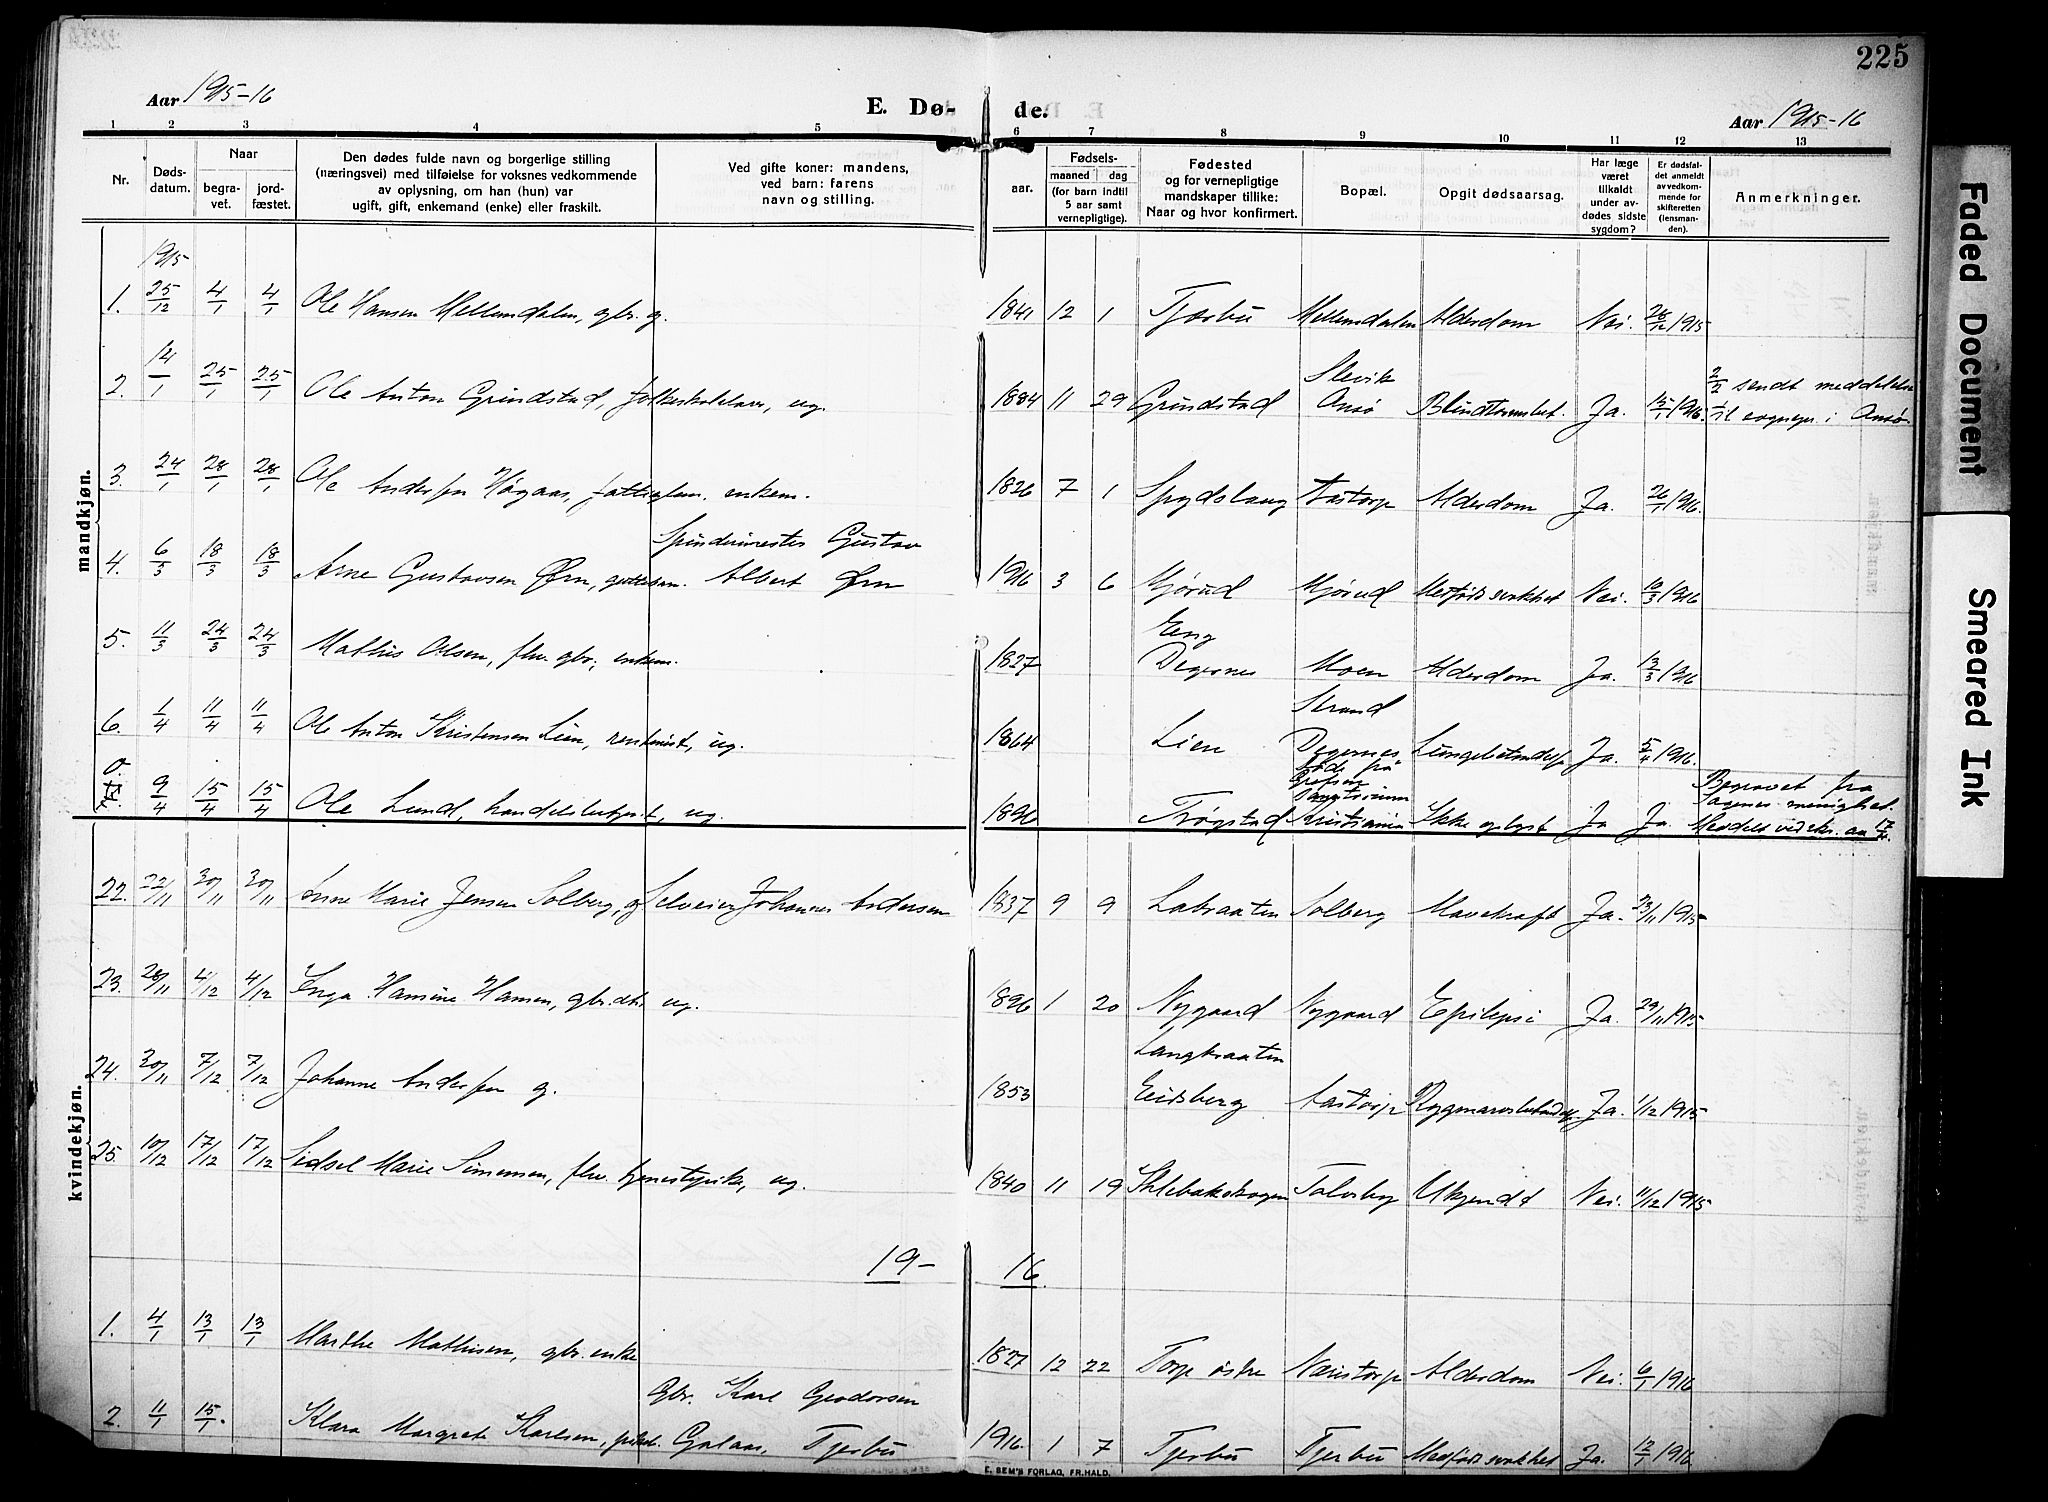 225
Aar 1915-16
E. Dø- de.
Aar 1915-16
1 2 3 4 5 6 7 8 9 10 11 12 13
Nr.
Døds-
datum.
Naar
begra-
vet.
jord-
fæstet.
Den dødes fulde navn og borgerlige stilling
(næringsvei) med tilføielse for voksnes vedkommende
av oplysning, om han (hun) var
ugift, gift, enkemand (enke) eller fraskilt.
Ved gifte koner: mandens,
ved barn: farens
navn og stilling.
aar.
Fødsels-
maaned dag
(for barn indtil
5 aar samt
vernepligtige).
Fødested
og for vernepligtige
mandskaper tillike:
Naar og hvor konfirmert.
Bopæl.
Opgit dødsaarsag.
Har læge
været
tilkaldt
under av-
dødes sidste
sygdom?
Er dødsfal-
det anmeldt
av vedkom-
mende for
skifteretten
(lensman-
den).
Anmerkninger.
mandkjøn.
1915
1. 25/12 4/1 4/1 Ole Hansen Mellemdalen, gbr. g. 1841 12 1 Tjærbu Mellemdalen Alderdom Nei. 28/12 1915
2. 14/1 25/1 25/1 Ole Anton Grindstad, folkeskolelærer, ug. 1884 11 29 Grundstad Slevik Onsø Blindtarmsbet. Ja. 15/1 1916. 2/2 sendt meddelelse
til sognepr. i Onsø
3. 24/1 28/1 28/1 Ole Andersen Høgaas, fattiglem. enkem. 1826 7 1 Spydslaug Aastorp Alderdom Ja. 26/1 1916.
Spindemester Gustav
4. 6/3 18/3 18/3 Arne Gustavsen Ørn, Albert Ørn 1916 3 6 Mjørud Mjørud Medfødt svakhet Nei. 10/3 1916
Eng
5. 11/3 24/3 24/3 Mathis Olsen, fhv. gbr., enkem. 1827 Degernes Moen Alderdom Ja. 13/3 1916
Strand
6. 1/4 11/4 11/4 Ole Anton Kristensen Lien, rentenist, ug. 1864 Lien Degernes Lungebetændelse Ja. 5/4 1916.
Døde på
Grefsen
Sanatorium
Begravet fra
menighet.
7. 9/4 15/4 15/4 Ole Lund, handelsbetjent, ug. 1896 Trøgstad Kristiania Ikke oplyst Ja Ja.
kvindekjøn.
22. 22/11 30/11 30/11 Anne Marie Jensen Solberg, g. Selveier Johannes Andersen 1837 9 9 Labraaten Solberg Mavekræft Ja. 23/11 1915
23. 28/11 4/12 4/12 Inga Hansine Hansen, gbr.dtr. ug. 1896 1 20 Nygaard Nygaard Epilepsi Ja. 29/11 1915
Langbraaten
24. 30/11 7/12 7/12 Johanne Andersen g. 1853 Eidsberg Aastorp Rygmarvsbetændelse Ja. 1/12 1915
25. 10/12 17/12 17/12 Sidsel Marie Simensen, fhv. tjenestepike, ug. 1840 11 19 Taloby Ukjendt Nei. 11/12 1915
19- 16.
1. 4/1 13/1 13/1 Marthe Mathisen, gbr. enke 1827 12 22 Torp østre Næristorp Alderdom Nei. 6/1 1916
Gbr. Karl Geodorsen
2. 11/1 15/1. Klara Margrete Karlsen, Galaas, Tjerbu 1916. 1 7 Tjerbu Tjerbu Medfødt svakhet Ja. 12/1 1916.
E. SEM'S FORLAG, FR.HALD.
Faded Document
Smeared Ink